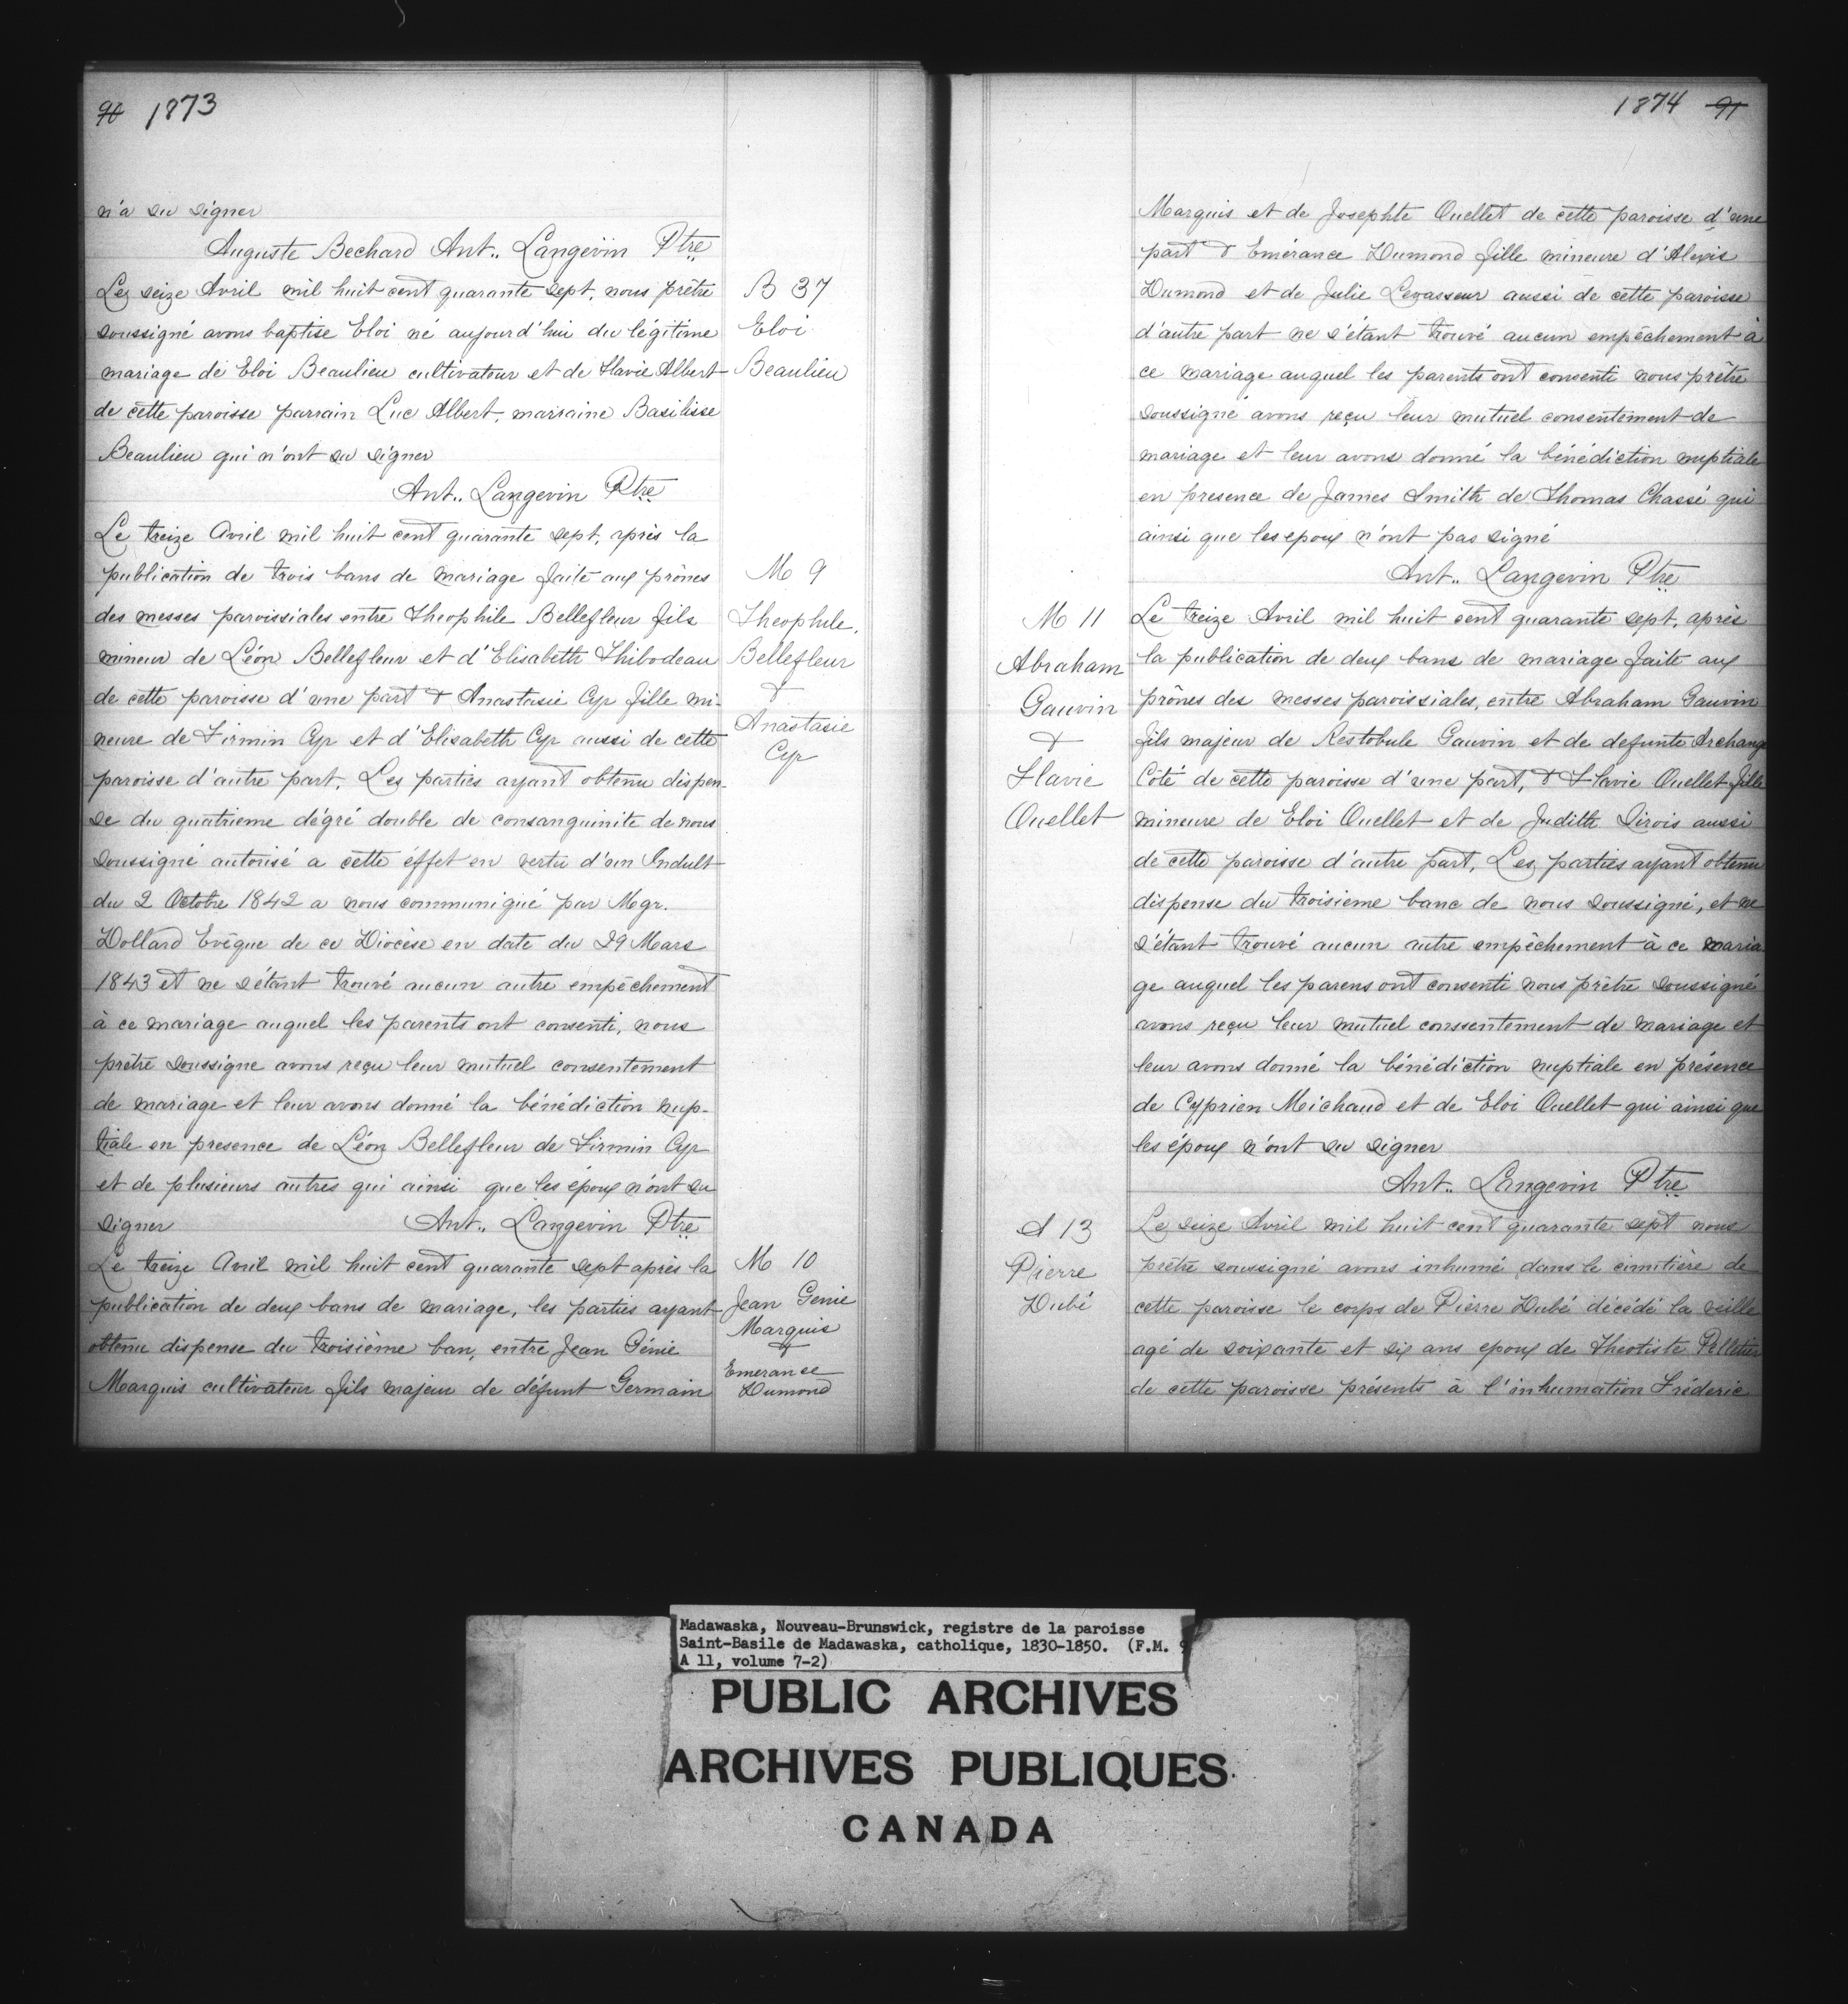 90 1873
n'a su signer
Auguste Bechard Ant.. Langevin Ptre
Le seize Avril mil huit cent quarante sept, nous prêtre
soussigné avons baptise Eloi né aujourd'hui du légitime
mariage de Eloi Beaulieu cultivateur et de Flavie Albert
de cette paroisse parrain Luc Albert, marraine Basilisse
Beaulieu qui n'ont su signer
Ant.. Langevin Ptre
B 37
Eloi
Beaulieu
Le treize Avril mil huit cent quarante sept, après la
publication de trois bans de mariage faite aux prônes
des messes paroissiales entre Theophile Bellefleur fils
mineur de Léon Bellefleur et d'Elisabeth Thibodeau
de cette paroisse d'une part & Anastasie Cyr fille mi-
neure de Firmin Cyr et d'Elisabeth Cyr aussi de cette
paroisse d'autre part. Les parties ayant obtenu dispen-
se du quatrieme dégré double de consanguinite de nous
soussigné autorisé a cette éffet en vertu d'un Indult
du 2 Octobre 1842 a nous communiqué par Mgr.
Dollard Evêque de ce Diocèse en date du 29 Mars
1843 et ne s'étant trouvé aucun autre empêchement
à ce mariage auquel les parents ont consenti, nous
prêtre soussigne avons reçu leur mutuel consentement
de mariage et leur avons donné la bénédiction nup-
tiale en presence de Léon Bellefleur de Firmin Cyr
et de plusieurs autres qui ainsi que les époux n'ont su
signer Ant.. Langevin Ptre
M 9
Theophile
Bellefleur
&
Anastasie
Cyr
Le treize Avril mil huit cent quarante sept après la
publication de deux bans de mariage, les parties ayant
obtenu dispense du troisième ban, entre Jean Génie
Marquis cultivateur fils majeur de défunt Germain
M 10
Jean Genie
Marquis
&
Emerance
Dumond
1874 91
Marquis et de Josephte Ouellet de cette paroisse d'une
part & Emérance Dumond fille mineure d'Alexis
Dumond et de Julie Levasseur aussi de cette paroisse
d'autre part ne s'étant trouvé aucun empêchement à
ce mariage auquel les parents ont consenti nous prêtre
soussigné avons reçu leur mutuel consentement de
mariage et leur avons donné la bénédiction nuptiale
en presence de James Smith de Thomas Chassé qui
ainsi que les epoux n'ont pas signé
Ant.. Langevin Ptre
M 11
Abraham
Gauvin
&
Flavie
Ouellet
Le treize Avril mil huit cent quarante sept, après
la publication de deux bans de mariage faite aux
prônes des messes paroissiales, entre Abraham Gauvin
fils majeur de Restobule Gauvin et de defunte Archange
Côté de cette paroisse d'une part, & Flavie Ouellet fille
mineure de Eloi Ouellet et de Judith Sirois aussi
de cette paroisse d'autre part, Les parties ayant obtenu
dispense du troisieme banc de nous soussigné, et ne
s'étant trouvé aucun autre empêchement à ce maria
ge auquel les parens ont consenti nous prêtre soussigné
avons reçu leur mutuel conssentement de mariage et
leur avons donné la bénédiction nuptiale en présence
de Cyprien Michaud et de Eloi Ouellet qui ainsi que
les époux n'ont su signer
Ant.. Langevin Ptre
S 13
Pierre
Dubé
Le seize Avril mil huit cent quarante sept nous
prêtre soussigné avons inhumé dans le cimitière de
cette paroisse le corps de Pierre Dubé décédé la veille
agé de soixante et six ans epoux de Theotiste Pelletier
de cette paroisse présents à l'inhumation Fréderic
Madawaska, Nouveau-Brunswick, registre de la paroisse
Saint-Basile de Madawaska, catholique, 1830-1850. (F.M. 9
A 11, volume 7-2)
PUBLIC ARCHIVES
ARCHIVES PUBLIQUES
CANADA